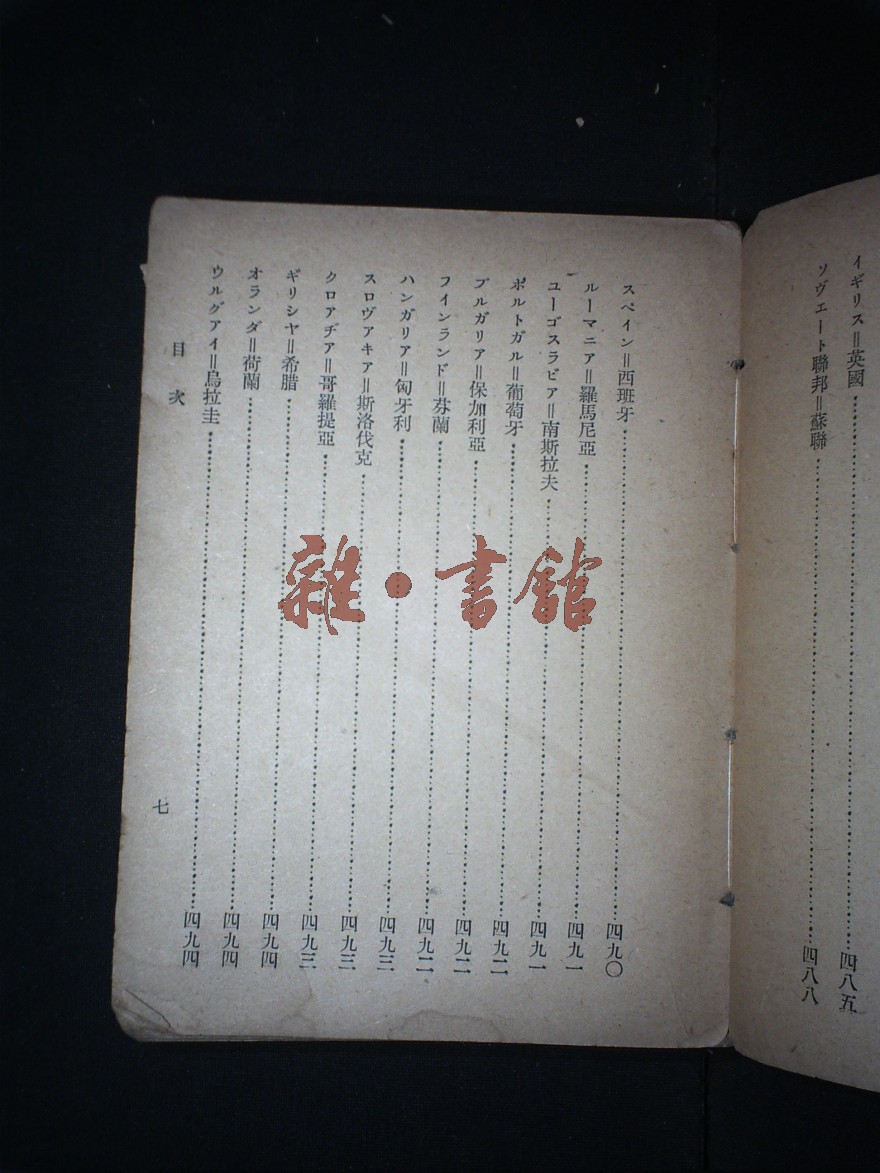 イギリス＝英國……四八五
ソヴエート聯邦＝蘇聯……四八八
スペイン＝西班牙……四九〇
ルーマニア＝羅馬尼亞……四九一
ユーゴスラビア＝南斯拉夫……四九一
ポルトガル＝葡萄牙……四九二
ブルガリア＝保加利亞……四九二
フインランド＝芬蘭……四九二
ハンガリア＝匈牙利……四九三
スロヴアキア＝斯洛伐克……四九三
クロアヂア＝哥羅提亞……四九三
ギリシヤ＝希腊……四九四
オランダ＝荷蘭……四九四
ウルグアイ＝烏拉圭……四九四
目次
七
雜・書館